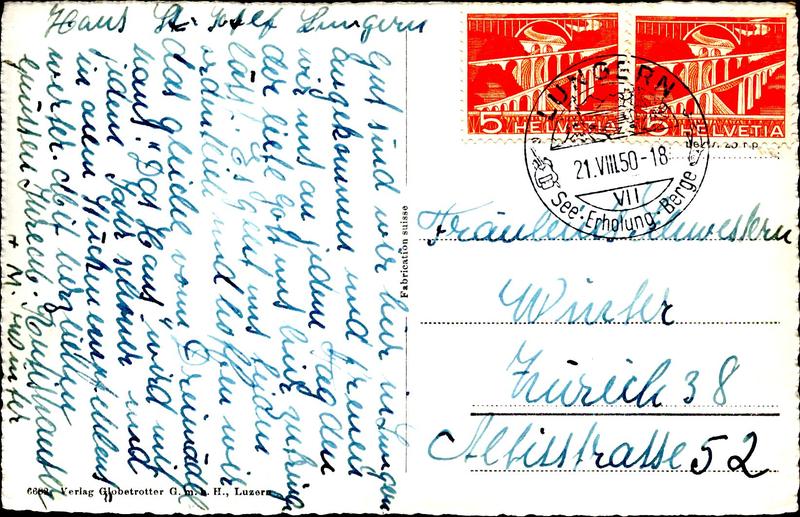 Haus St. Josef Lungern
Gut sind wir hier in Lungern
angekommen und freuen
wir uns an jedem Tag den
der liebe Gott uns hier zubringen
lässt. Es geht uns beiden
ordentlich und hoffen wir
das gleiche vom Dreimädel
haus. "Das Haus" wird mit
jedem Jahr schöner und
in allen Küchen
weiter. Mit herzlichen
Grüssen
+ M. Winter
Fabrication suisse
6682 Verlag Globetrotter G. m. b. H., Luzern
5 HELVETIA
5 HELVETIA
LUNGERN
21.VIII.50-18
VII
See-Erholung-Berge
Fräulein Schwestern
Winter
Zürich 38
Albisstrasse 52